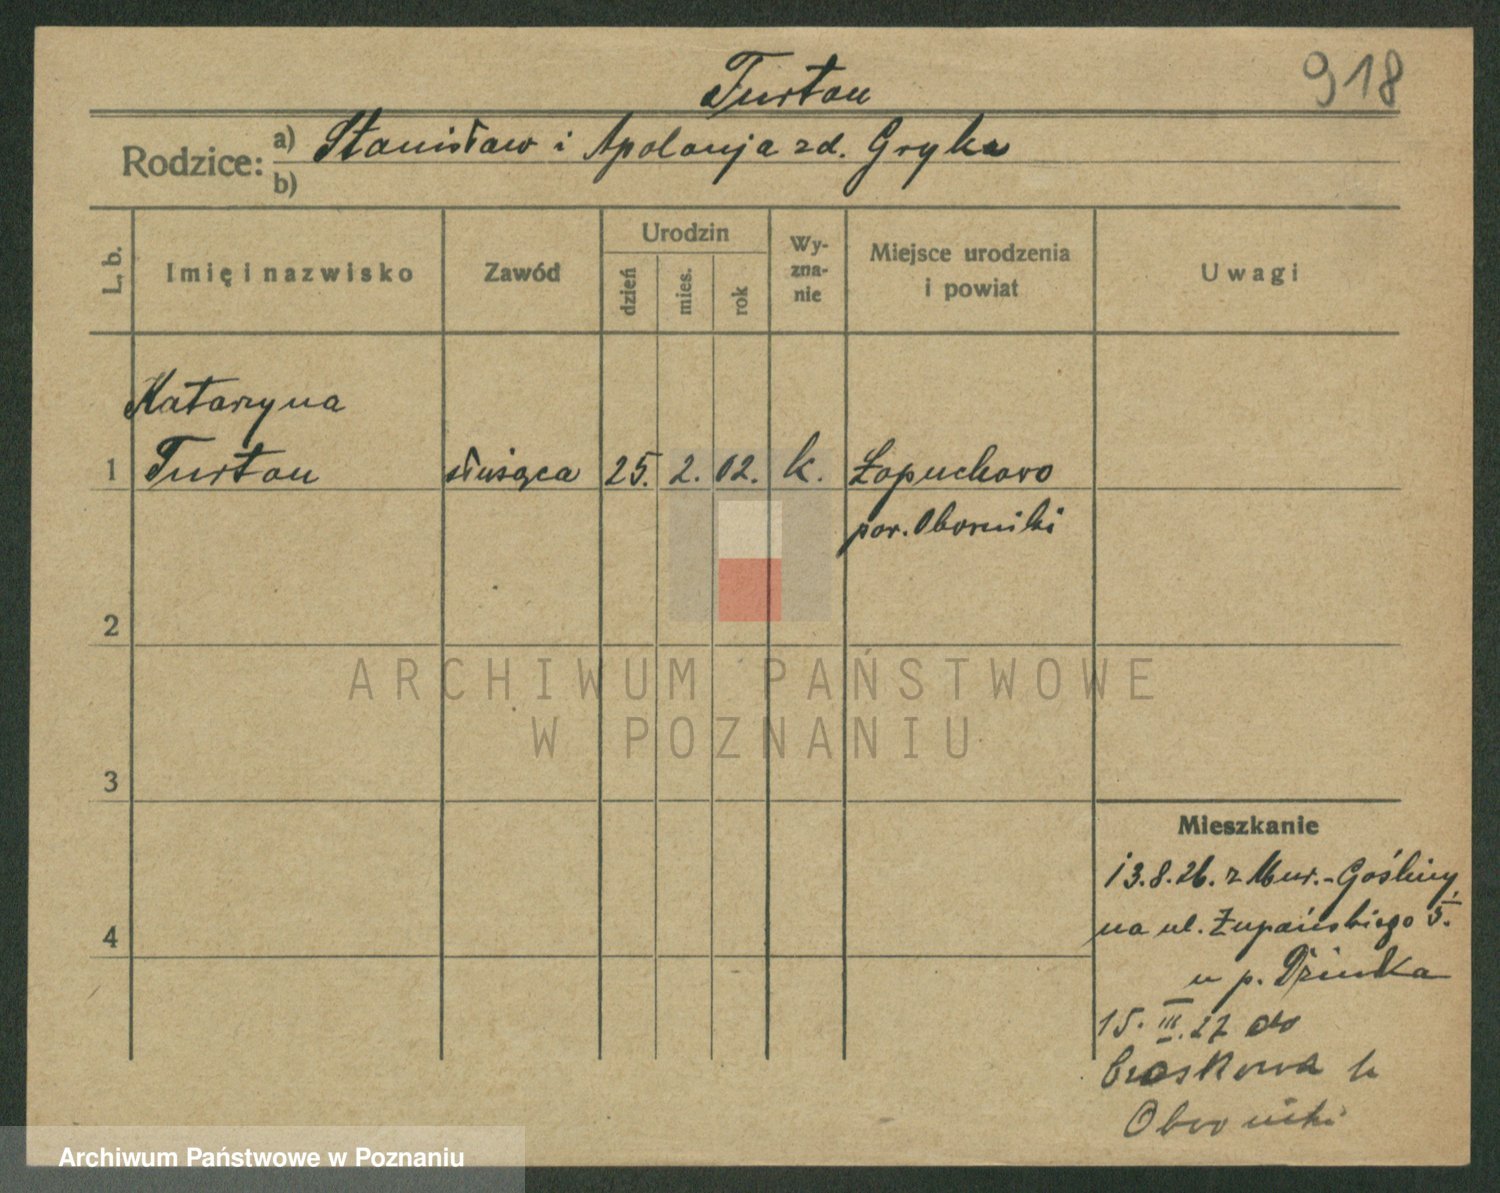 918
Turtou
Rodzice: a) Stanisław i Apolonja zd. Gryka
b)
L. b.
Imię i nazwisko
Zawód
Urodzin
dzień
mies.
rok
Wy-
zna-
nie
Miejsce urodzenia
i powiat
Uwagi
Katarzyna
1 Turtou służąca 25. 2. 02. k. Łopuchowo
pow. Oborniki
2
ARCHIWUM PAŃSTWOWE
W POZNANIU
3
4
Mieszkanie
13.8.26. z Mur.-Gośliny
na ul. Żupańskiego 5.
u p.
15. III. 27 do
k
Oborniki
Archiwum Państwowe w Poznaniu